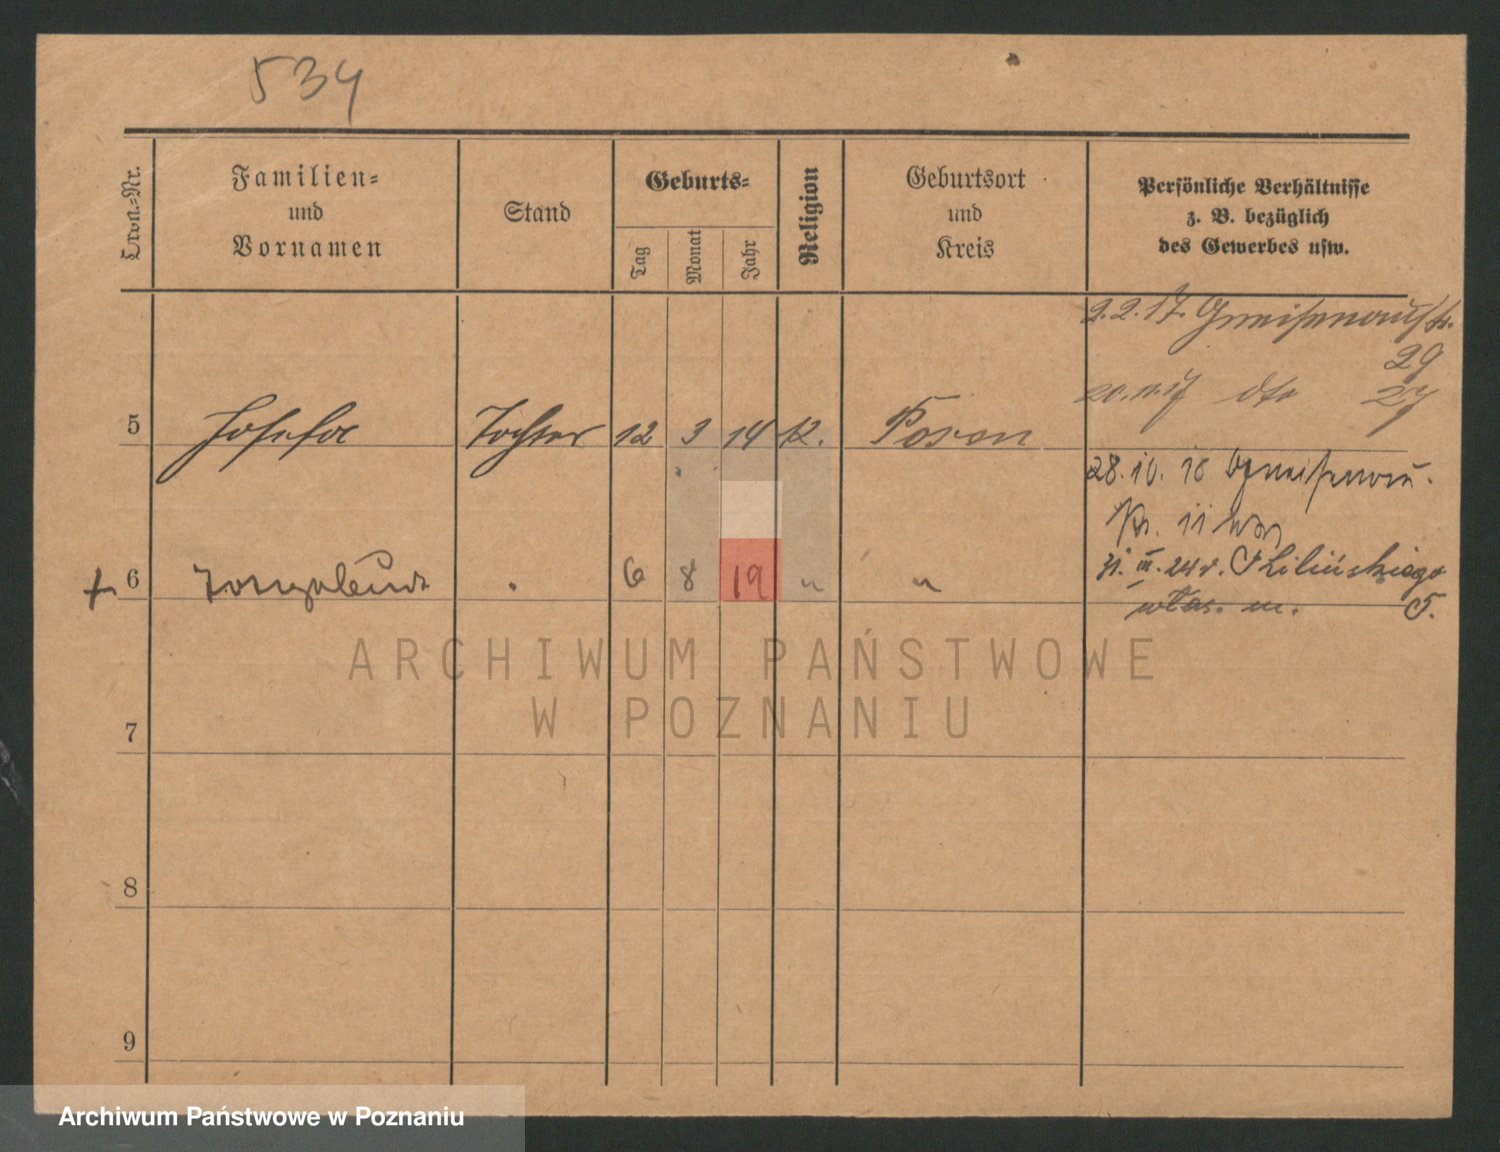 534
Lfde.=Nr.
Familien=
und
Vornamen
Stand
Geburts=
Tag
Monat
Jahr
Religion
Geburtsort
und
Kreis
Persönliche Verhältnisse
z. B. bezüglich
des Gewerbes usw.
2.2.17. Gneisenaustr.
29
20.11.17 dto 27
5 Josefa Tochter 12 3 14 K. Posen
28.10.18 Gneisenau-
str. 11
6 6 8 19 " "
31.III.24 r. Żelińskiego
włas. m. 5.
ARCHIWUM PAŃSTWOWE
W POZNANIU
7
8
9
Archiwum Państwowe w Poznaniu